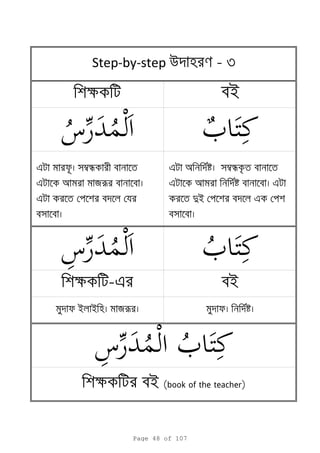 Step-by-step উদাহরণ - ৩
শিক্ষকটি বই
اَلْمُدَرِّسُ كِتَابٌ
এটা মারফূ। সম্বন্ধকারী বানাতে এটা অনির্দিষ্ট। সম্বন্ধকৃত বানাতে
এটাকে আমরা মাজরূর বানাবো। এটাকে আমরা নির্দিষ্ট বানাবো। এটা
এটা করতে পেশের বদলে যের করতে দুই পেশের বদলে এক পেশ
বসাবো। বসাবো।
اَلْمُدَرِّسِ كِتَابُ
শিক্ষকটি-এর বই
মুদাফ ইলাইহি। মাজরূর। মুদাফ। নির্দিষ্ট।
كِتَابُ الْمُدَرِّسِ
শিক্ষকটির বই (book of the teacher)
Page 48 of 107